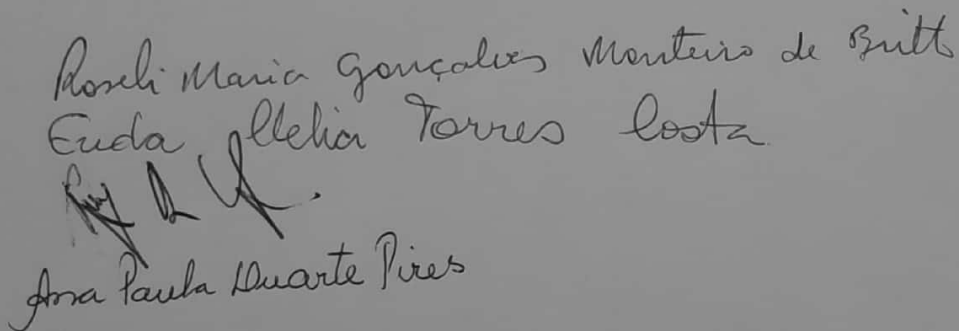 Roseli Maria Gonçalves Monteiro de Britto
Euda Clelia Torres Costa
Ana Paula Duarte Pires